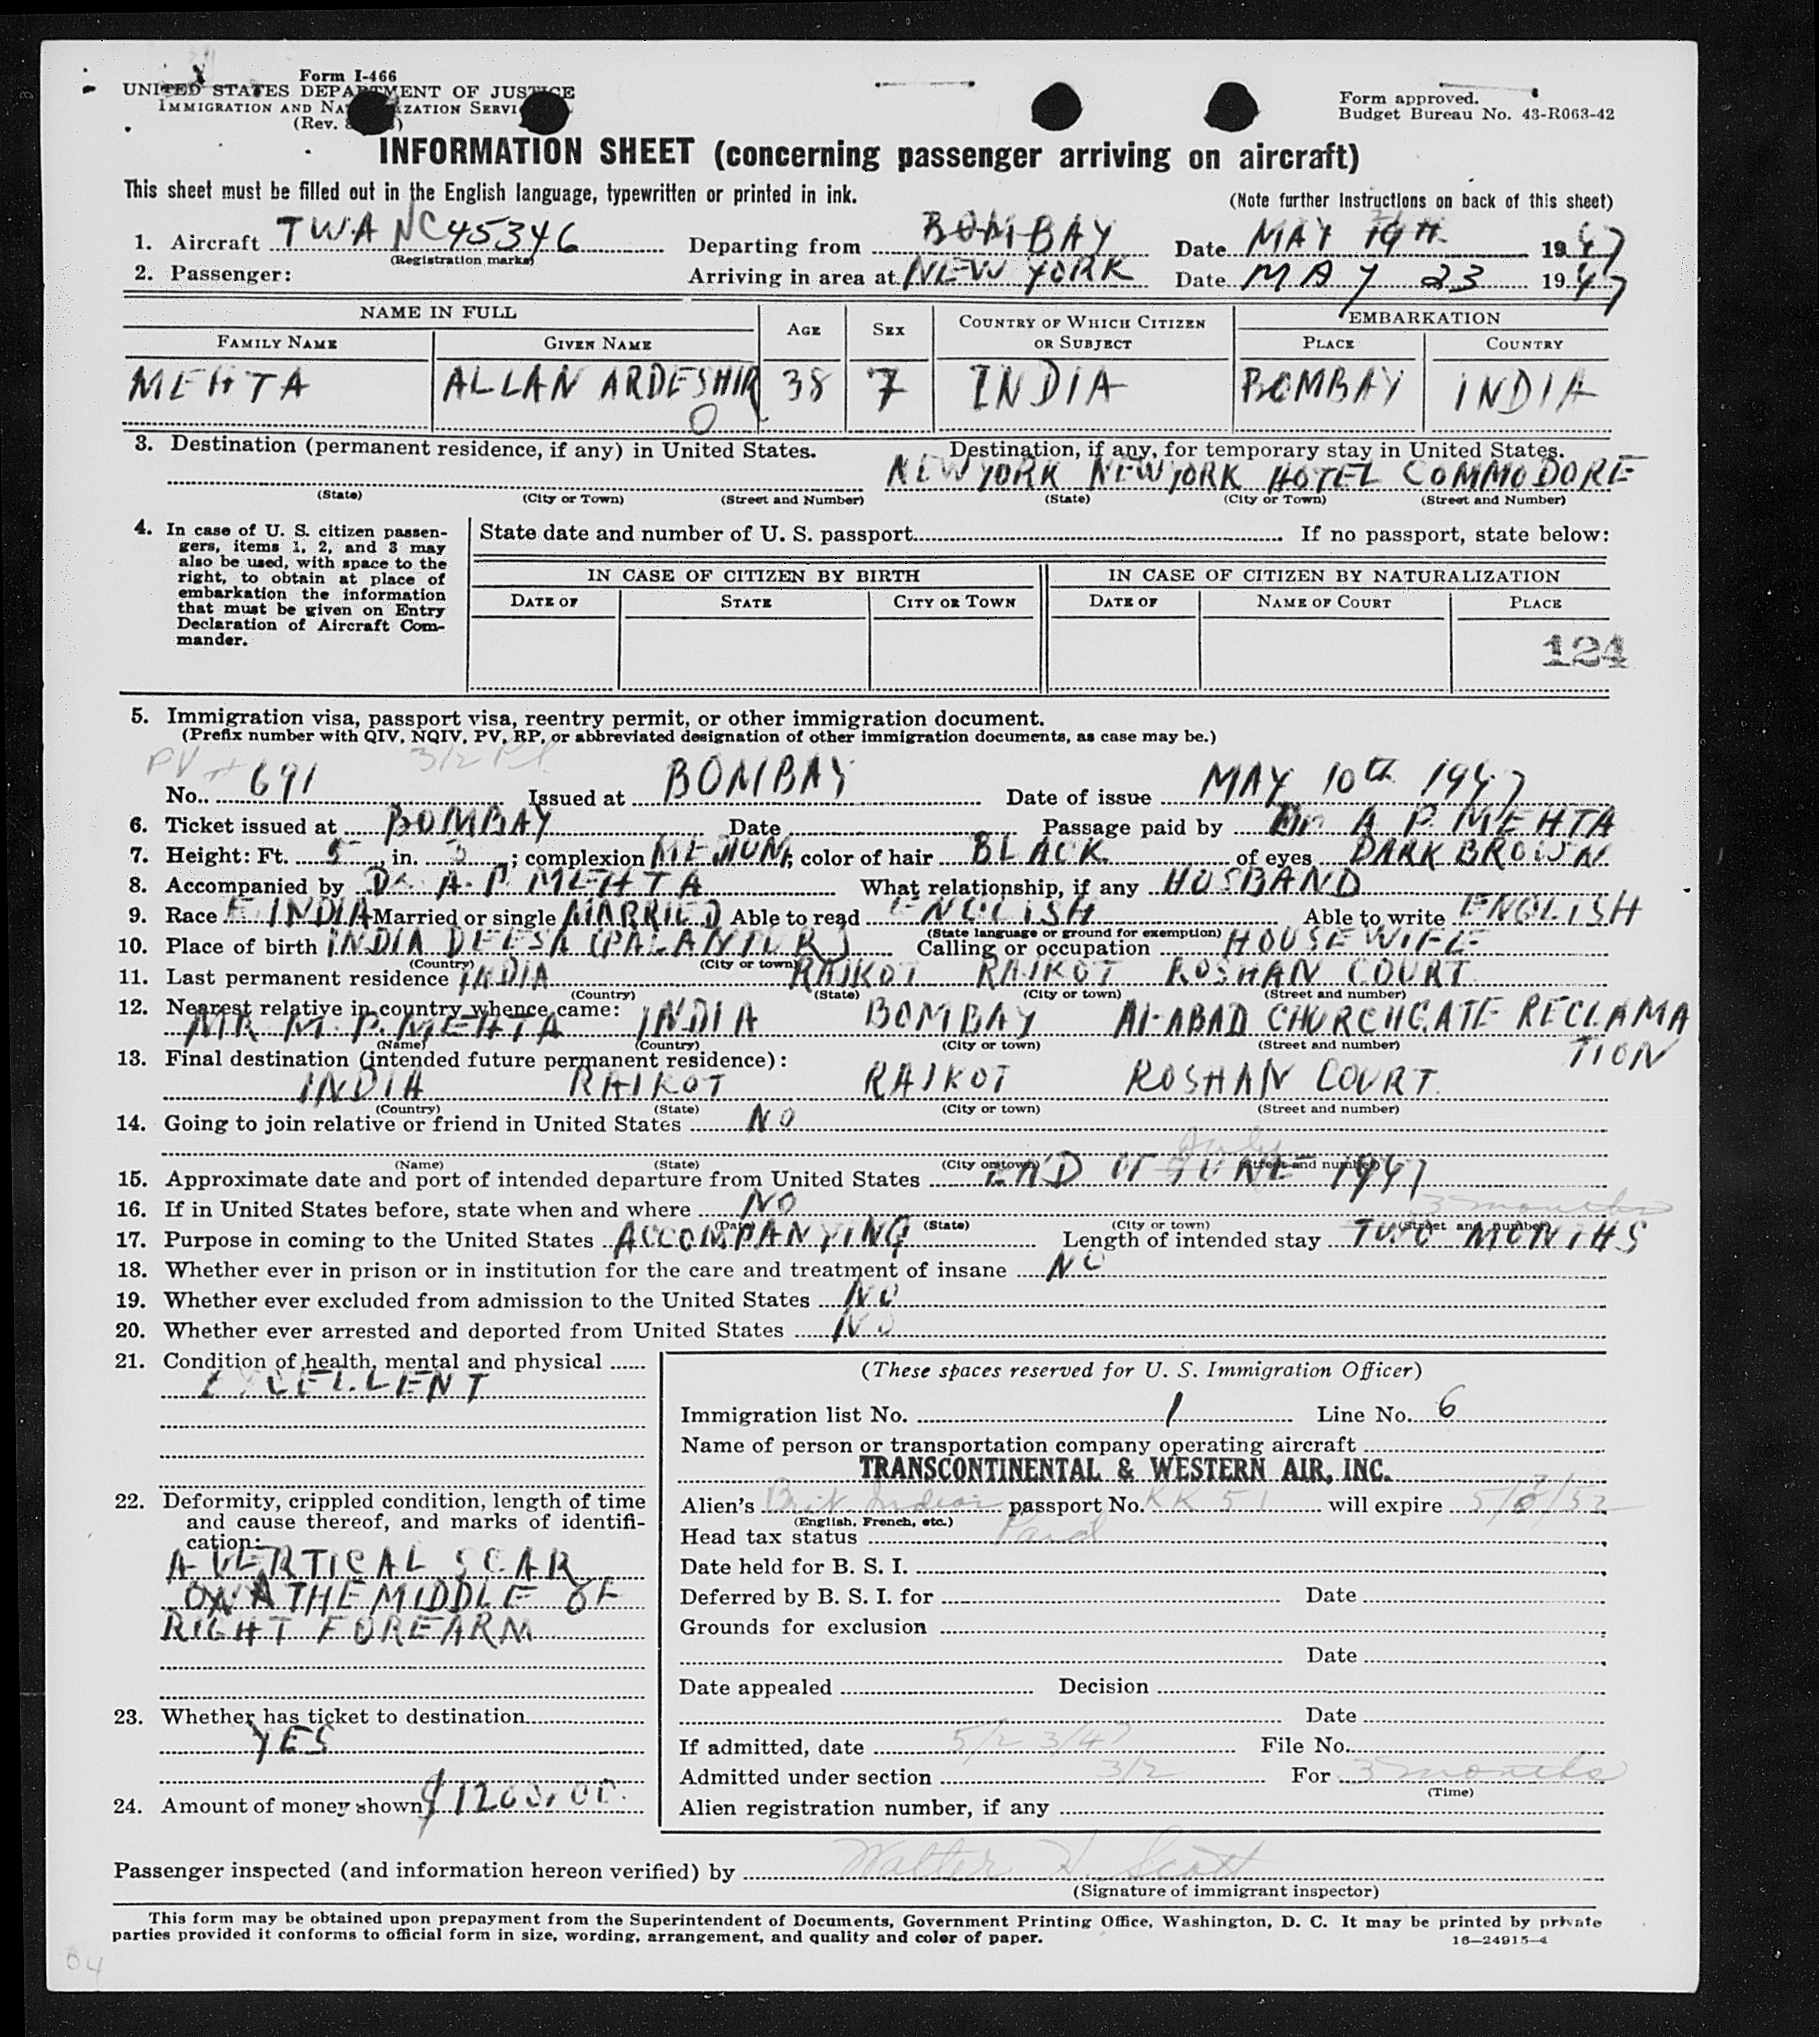 Form I-466
UNITED STATES DEPARTMENT OF JUSTICE
IMMIGRATION AND NATURALIZATION SERVICE
(Rev.
Form approved.
Budget Bureau No. 43-R063-42
INFORMATION SHEET (concerning passenger arriving on aircraft)
This sheet must be filled out in the English language, typewritten or printed in ink.
(Note further instructions on back of this sheet)
1. Aircraft TWA NC45346 Departing from BOMBAY Date MAY 1947
(Registration marks)
2. Passenger: Arriving in area at NEW YORK Date MAY 23 1947
NAME IN FULL AGE SEX COUNTRY OF WHICH CITIZEN OR SUBJECT EMBARKATION
FAMILY NAME GIVEN NAME PLACE COUNTRY
MEHTA ALLAN ARDESHIR 38 7 INDIA BOMBAY INDIA
3. Destination (permanent residence, if any) in United States. Destination, if any, for temporary stay in United States.
NEW YORK NEW YORK HOTEL COMMODORE
(State) (City or Town) (Street and Number) (State) (City or Town) (Street and Number)
4. In case of U. S. citizen passen-
gers, items 1, 2, and 3 may
also be used, with space to the
right, to obtain at place of
embarkation the information
that must be given on Entry
Declaration of Aircraft Com-
mander.
State date and number of U. S. passport If no passport, state below:
IN CASE OF CITIZEN BY BIRTH IN CASE OF CITIZEN BY NATURALIZATION
DATE OF STATE CITY OR TOWN DATE OF NAME OF COURT PLACE
124
5. Immigration visa, passport visa, reentry permit, or other immigration document.
(Prefix number with QIV, NQIV, PV, RP, or abbreviated designation of other immigration documents, as case may be.)
PV
No. 691 Issued at BOMBAY Date of issue MAY 10th 1947
6. Ticket issued at BOMBAY Date Passage paid by Dr A P. MEHTA
7. Height: Ft. 5, in. 3; complexion MEDIUM; color of hair BLACK of eyes DARK BROWN
8. Accompanied by Dr. A. P. MEHTA What relationship, if any HUSBAND
9. Race E. INDIA Married or single MARRIED Able to read ENGLISH Able to write ENGLISH
(State language or ground for exemption)
10. Place of birth INDIA DEESA (PALANPUR) Calling or occupation HOUSEWIFE
(Country) (City or town)
11. Last permanent residence INDIA RAJKOT RAJKOT ROSHAN COURT
(Country) (State) (City or town) (Street and number)
12. Nearest relative in country whence came:
MR M. P. MEHTA INDIA BOMBAY CHURCHGATE RECLAMA
TION
(Name) (Country) (City or town) (Street and number)
13. Final destination (intended future permanent residence):
INDIA RAJKOT RAJKOT ROSHAN COURT.
(Country) (State) (City or town) (Street and number)
14. Going to join relative or friend in United States NO
(Name) (State) (City or town) (Street and number)
July
15. Approximate date and port of intended departure from United States END OF JUNE 1947
16. If in United States before, state when and where NO
3 months
(Date) (State) (City or town) (Street and number)
17. Purpose in coming to the United States ACCOMPANYING Length of intended stay TWO MONTHS
18. Whether ever in prison or in institution for the care and treatment of insane NO
19. Whether ever excluded from admission to the United States NO
20. Whether ever arrested and deported from United States NO
21. Condition of health, mental and physical
EXCELLENT
22. Deformity, crippled condition, length of time
and cause thereof, and marks of identifi-
cation:
A VERTICAL SCAR
ON THE MIDDLE OF
RIGHT FOREARM
23. Whether has ticket to destination
YES
24. Amount of money shown $1200.00
(These spaces reserved for U. S. Immigration Officer)
Immigration list No. 1 Line No. 6
Name of person or transportation company operating aircraft
TRANSCONTINENTAL & WESTERN AIR, INC.
Alien's Brit Indian passport No. KK 51 will expire
(English, French, etc.)
Head tax status Paid
Date held for B. S. I.
Deferred by B. S. I. for Date
Grounds for exclusion
Date
Date appealed Decision
Date
If admitted, date 5/23/47 File No.
Admitted under section 3/2 For 3 months
(Time)
Alien registration number, if any
Passenger inspected (and information hereon verified) by Walter H. Scott
(Signature of immigrant inspector)
This form may be obtained upon prepayment from the Superintendent of Documents, Government Printing Office, Washington, D. C. It may be printed by private
parties provided it conforms to official form in size, wording, arrangement, and quality and color of paper.
16—24915-4